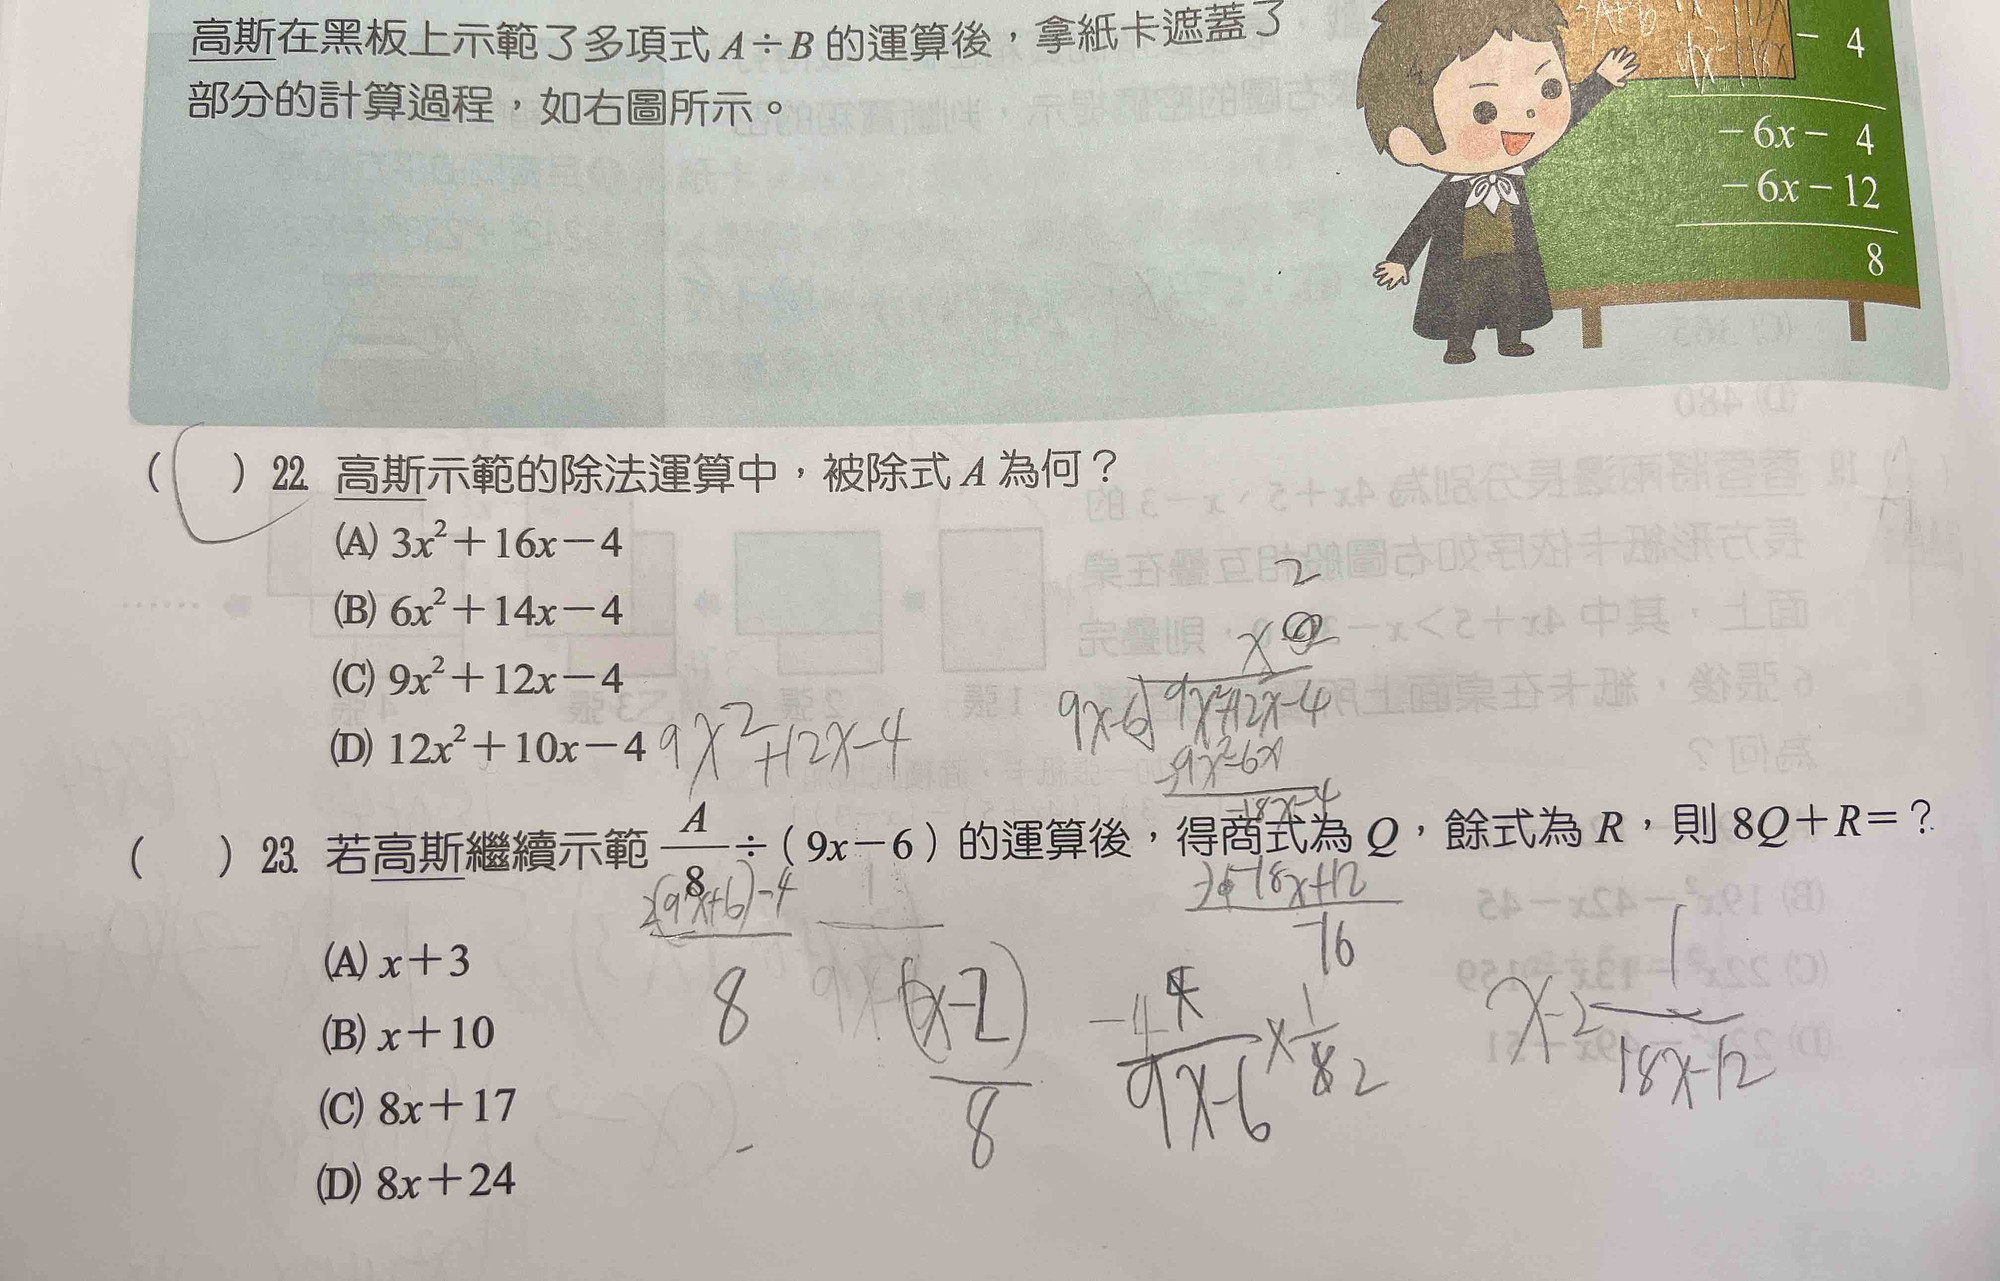 高斯在黑板上示範了多項式 A÷B 的運算後，拿紙卡遮蓋了
部分的計算過程，如右圖所示。
－ 4
－6x－ 4
－6x－12
8
（ ）22. 高斯示範的除法運算中，被除式 A 為何？
(A) 3x²＋16x－4
(B) 6x²＋14x－4
(C) 9x²＋12x－4
(D) 12x²＋10x－4
9x²+12x-4
2
x
9x-6
9x²+12x-4
-9x²-6x
18x-4
-18x+12
-16
（ ）23. 若高斯繼續示範 A/8 ÷（9x－6）的運算後，得商式為 Q，餘式為 R，則 8Q＋R＝？
2(9x+6)-4
8
(A) x＋3
(B) x＋10
(C) 8x＋17
(D) 8x＋24
8
9x-6 × 1/8 2
x-2 1/18x-12